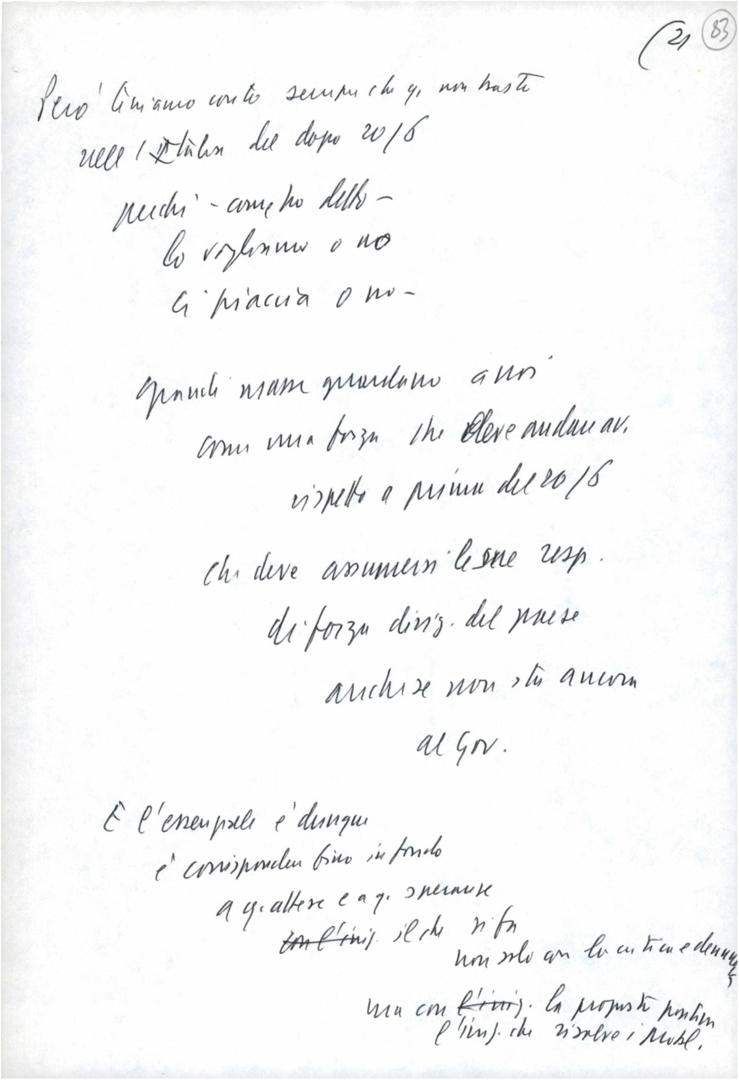 (21 83
Però teniamo conto sempre che q. non basta
nell'Italia del dopo 20/6
perché - come ho detto -
lo vogliamo o no
ci piaccia o no -
grandi masse guardano a noi
come una forza che deve andare av.
rispetto a prima del 20/6
che deve assumersi le sue resp.
di forza dirig. del paese
anche se non sta ancora
al Gov.
E l'essenziale è dunque
è corrispondere fino in fondo
a q. attese e a q. speranze
con l'iniz. il che si fa
non solo con la critica e denunc
ma con l'iniz. la proposta positiva
l'iniz. che risolve i probl.